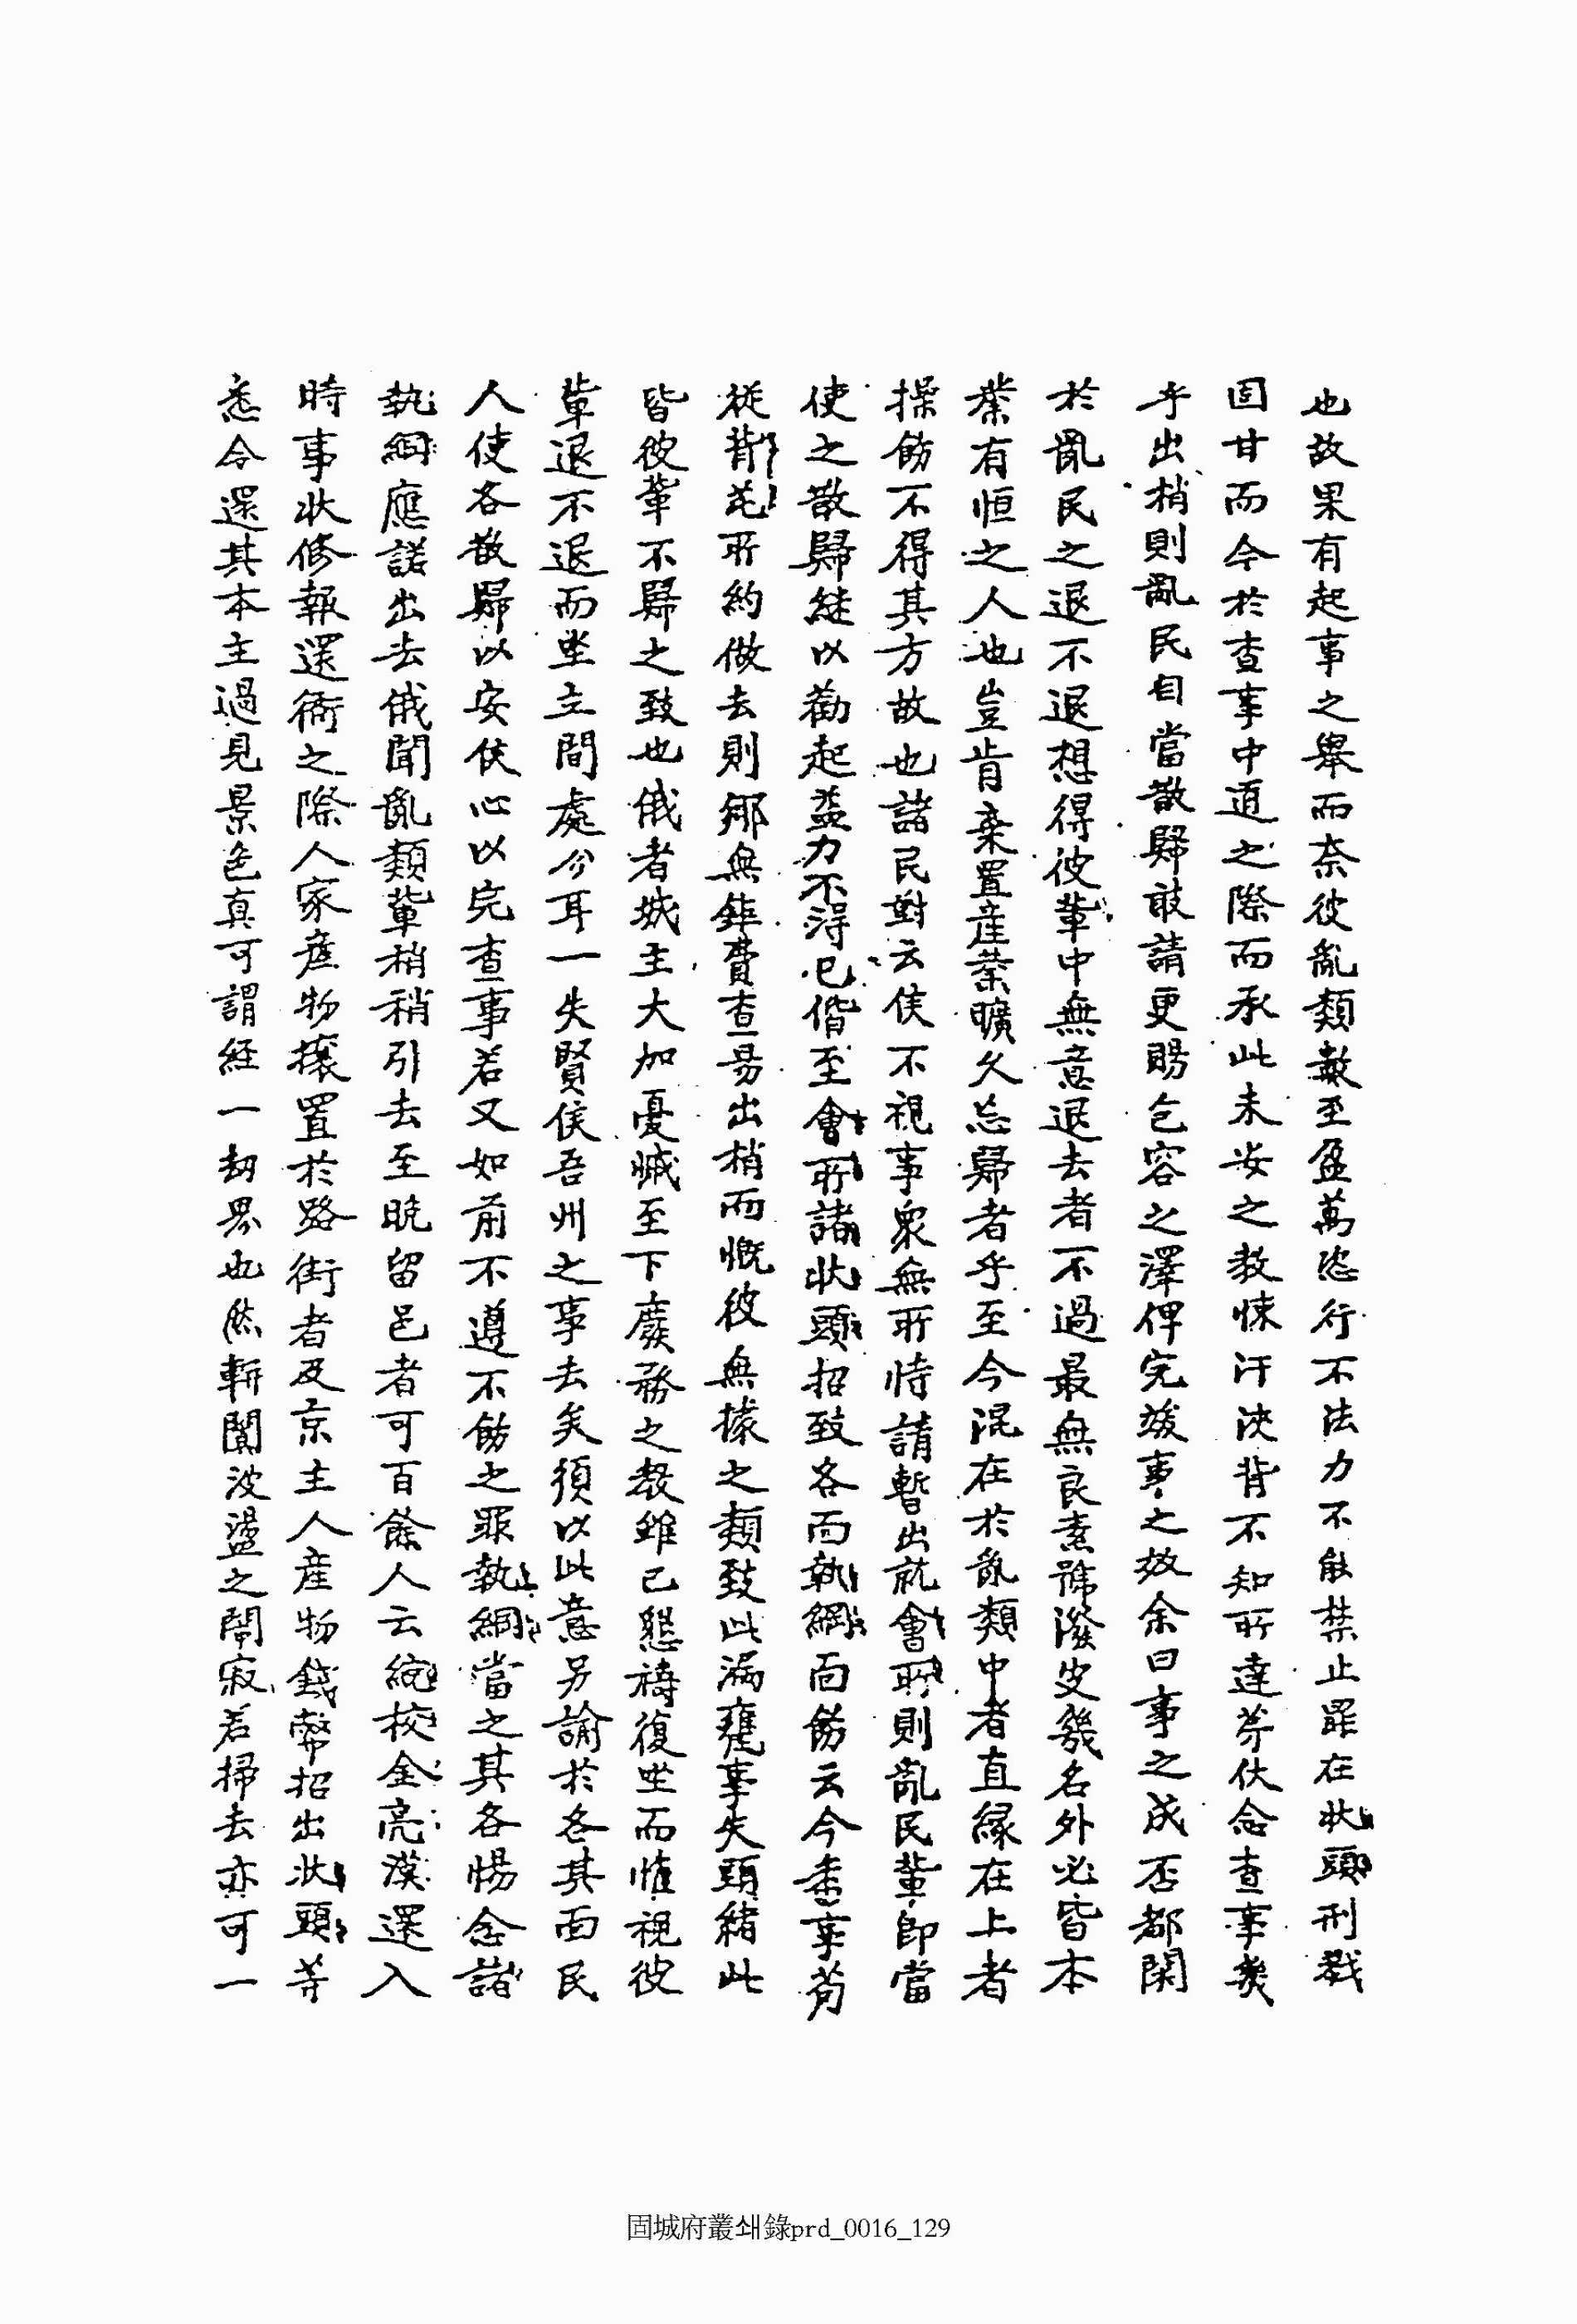 也故果有起事之擧而奈彼亂類數至盈萬恣行不法力不能禁止罪在狀頭刑戮
固甘而今於查事中適之際而承此未安之敎悚汗浹背不知所達第伏念查事幾
乎出梢則亂民自當散歸敢請更賜包容之澤俾完竣事之效余曰事之成否都關
於亂民之退不退想得彼輩中無意退去者不過最無良素號潑皮幾名外必皆本
業有恒之人也豈肯棄置産業曠久忘歸者乎至今混在於亂類中者直緣在上者
操飭不得其方故也諸民對云侯不視事衆無所恃請暫出就會所則亂民輩卽當
使之散歸繼以勸起益力不得已偕至會所諸狀頭招致各面執綱面飭云今番事苟
從背
所約做去則鄕無雜費查易出梢而慨彼無據之類致此漏瓮事失頭緖此
皆彼輩不歸之致也俄者城主大加憂慽至下廢務之敎雖已懇禱復坐而惟視彼
輩退不退而坐立間處分耳一失賢侯吾州之事去矣須以此意另諭於各其面民
人使各散歸以安侯心以完查事若又如前不遵不飭之罪執綱當之其各惕念諸
執綱應諾出去俄聞亂類輩稍稍引去至晩留邑者可百餘人云統校金亮漢還入
時事狀修報還衙之際人家産物攘置於路街者及京主人産物錢幣招出狀頭等
悉令還其本主過見景色眞可謂經一劫界也然軿闐波盪之鬧寂若掃去亦可一